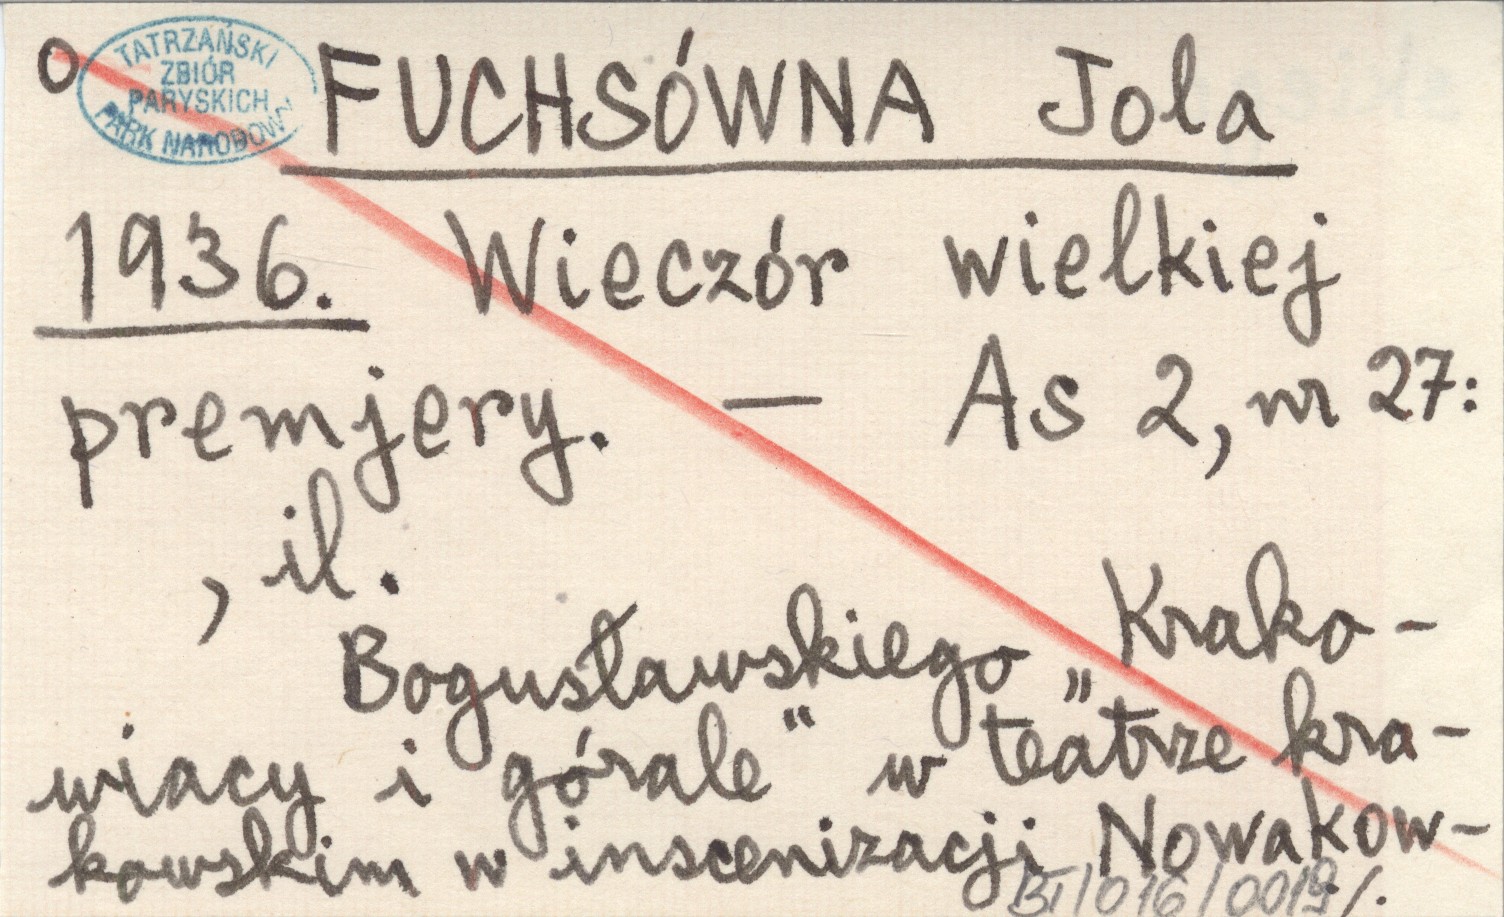 O
TATRZAŃSKI
ZBIÓR
PARYSKICH
PARK NARODOWY
FUCHSÓWNA Jola
1936. Wieczór wielkiej
premjery. — As 2, nr 27:
, il.
Bogusławskiego „Krako-
wiacy i górale" w teatrze kra-
kowskim w inscenizacji Nowakow-
BT/016/0019/.